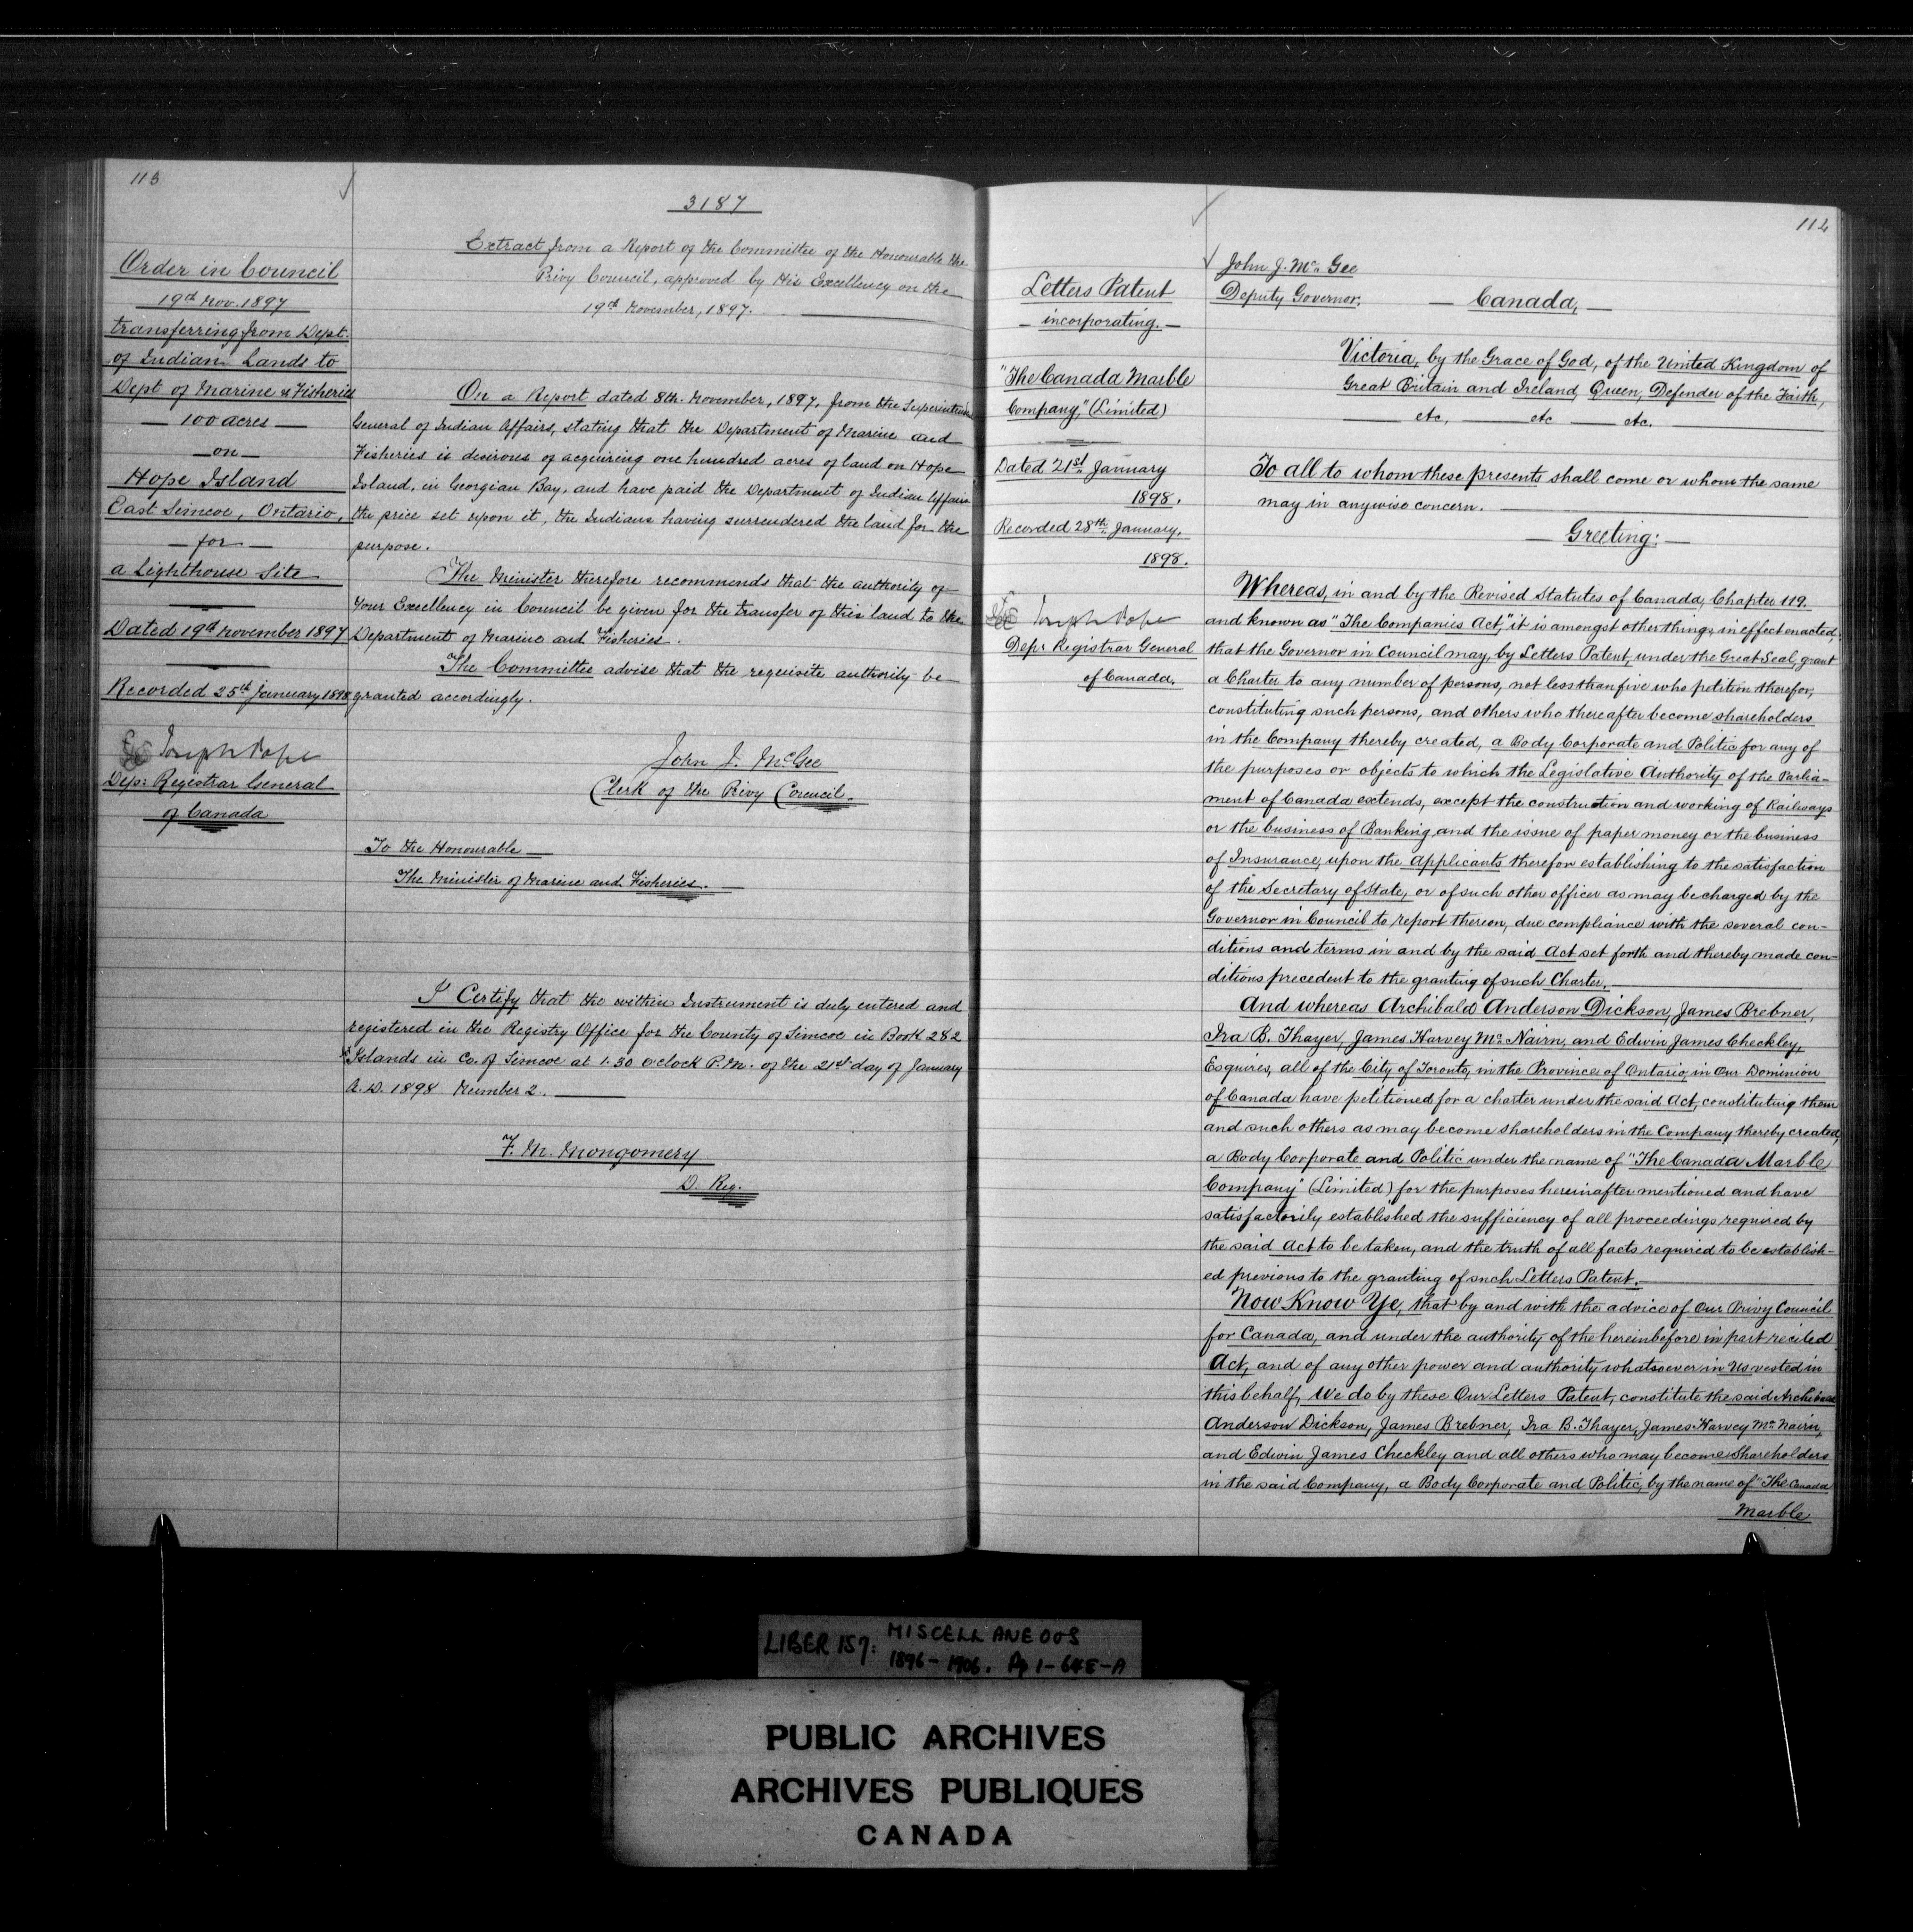 113
Order in Council
19th Nov. 1897
transferring from Dept.
of Indian Lands to
Dept of Marine & Fisheries
100 acres
on
Hope Island
East Simcoe, Ontario,
for
a Lighthouse Site
Dated 19th November 1897
Recorded 25th January 1898
Joseph Pope
Dep: Registrar General
of Canada
3187
Extract from a Report of the Committee of the Honourable the
Privy Council, approved by His Excellency on the
19th November, 1897.
On a Report dated 8th. November, 1897, from the Superintendent
General of Indian Affairs, stating that the Department of Marine and
Fisheries is desirous of acquiring one hundred acres of land on Hope
Island, in Georgian Bay, and have paid the Department of Indian Affairs
the price set upon it, the Indians having surrendered the land for the
purpose.
The Minister therefore recommends that the authority of
Your Excellency in Council be given for the transfer of this land to the
Department of Marine and Fisheries.
The Committee advise that the requisite authority be
granted accordingly.
John J. McGee
Clerk of the Privy Council.
To the Honourable
The Minister of Marine and Fisheries.
I Certify that the within Instrument is duly entered and
registered in the Registry Office for the County of Simcoe in Book 282
Islands in Co. of Simcoe at 1.30 o'clock P.M. of the 21st day of January
A.D. 1898 Number 2.
F. M. Montgomery
D. Reg.
114
Letters Patent
incorporating.
"The Canada Marble
Company," (Limited)
Dated 21st January
1898.
Recorded 28th January,
1898.
Joseph Pope
Dep: Registrar General
of Canada.
John J. Mc Gee
Deputy Governor.
Canada,
Victoria, by the Grace of God, of the United Kingdom of
Great Britain and Ireland, Queen, Defender of the Faith,
etc, etc etc.
To all to whom these presents shall come or whom the same
may in anywise concern.
Greeting:
Whereas, in and by the Revised Statutes of Canada, Chapter 119.
and known as "The Companies Act," it is amongst other things, in effect enacted,
that the Governor in Council may, by Letters Patent, under the Great Seal, grant
a Charter to any number of persons, not less than five who petition therefor,
constituting such persons, and others who thereafter become shareholders
in the Company thereby created, a Body Corporate and Politic for any of
the purposes or objects to which the Legislative Authority of the Parlia-
ment of Canada extends, except the construction and working of Railways
or the business of Banking and the issue of paper money or the business
of Insurance, upon the applicants therefor establishing to the satisfaction
of the Secretary of State, or of such other officer as may be charged by the
Governor in Council to report thereon, due compliance with the several con-
ditions and terms in and by the said Act set forth and thereby made con-
ditions precedent to the granting of such Charter.
And whereas Archibald Anderson Dickson, James Brebner,
Ira B. Thayer, James Harvey Mc Nairn, and Edwin James Checkley,
Esquires, all of the City of Toronto, in the Province of Ontario, in Our Dominion
of Canada have petitioned for a charter under the said Act, constituting them
and such others as may become shareholders in the Company thereby created,
a Body Corporate and Politic under the name of "The Canada Marble
Company" (Limited) for the purposes hereinafter mentioned and have
satisfactorily established the sufficiency of all proceedings required by
the said Act to be taken, and the truth of all facts required to be establish-
ed previous to the granting of such Letters Patent.
Now Know Ye, that by and with the advice of Our Privy Council
for Canada, and under the authority of the hereinbefore in part recited
Act, and of any other power and authority whatsoever in Us vested in
this behalf, We do by these Our Letters Patent, constitute the said Archibald
Anderson Dickson, James Brebner, Ira B. Thayer, James Harvey Mc Nairn,
and Edwin James Checkley and all others who may become Shareholders
in the said Company, a Body Corporate and Politic, by the name of "The Canada
Marble
LIBER 157: MISCELLANEOUS
1896-1906. Pp 1-648-A
PUBLIC ARCHIVES
ARCHIVES PUBLIQUES
CANADA